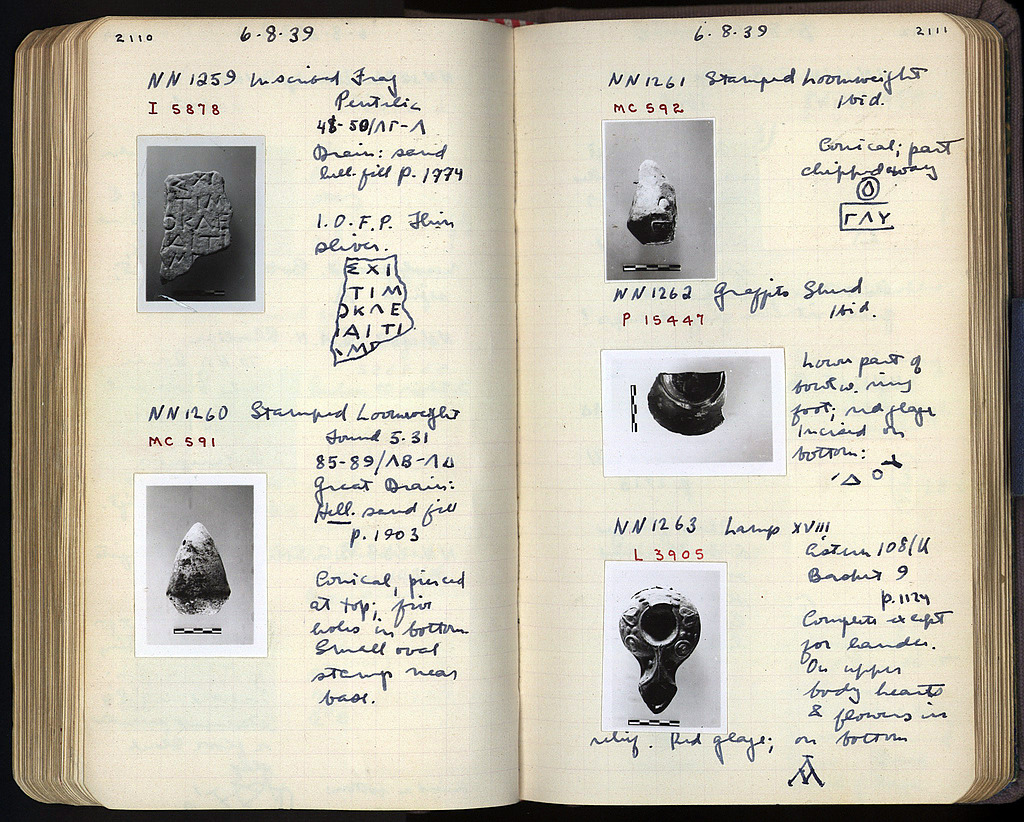 2110
6·8·39
NN 1259 Inscribed Frag
I 5878
Pentelic
48-50/ΛΓ-Λ
Drain: sand
hell. fill p. 1774
I.O.F.P. Thin
sliver.
ΕΧΙ
ΤΙΜ
ΟΚΛΕ
ΙΑΙΤΙ
ΙΜΓ
NN 1260 Stamped Loomweight
MC 591
Found 5·31
85-89/ΛΒ-ΛΔ
Great Drain:
Hell. sand fill
p. 1903
Conical, pierced
at top; five
holes in bottom
Small oval
stamp near
base.
2111
6·8·39
NN 1261 Stamped Loomweight
MC 592
Ibid.
Conical; part
chipped away
ΓΛΥ
NN 1262 Graffito Sherd
P 15447
Ibid.
Lower part of
bowl w. ring
foot; red glaze
Incised on
bottom:
Δ Ο
NN 1263 Lamp XVIII
L 3905
Cistern 108/
Basket 9
p. 1124
Complete except
for handle.
On upper
body hearts
& flowers in
relief. Red glaze; on bottom